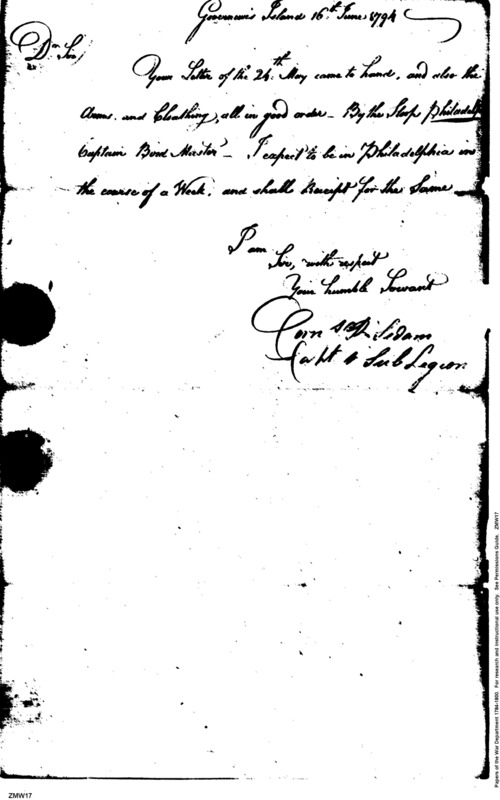 Governors Island 16th June 1794
Dr Sir,
Your Letter of the 24th May came to hand, and also the
Arms, and Cloathing, all in good order - By the Sloop Philadelp
Captain Bond Master - I expect to be in Philadelphia in
the course of a Week, and shall Receipt for the Same
I am
Sir, with respect
Your humble Servant
Corns R Sedam
Capt 1 Sub Legion
Papers of the War Department 1784-1800. For research and instructional use only. See Permissions Guide. ZMW17
ZMW17